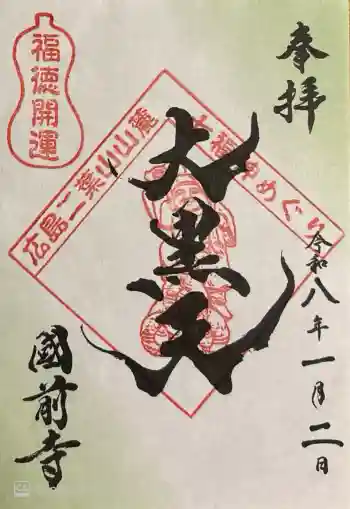 奉拝
令和八年一月二日
大黒天
國前寺
福徳開運
広島二葉山山麓
七福神めぐり